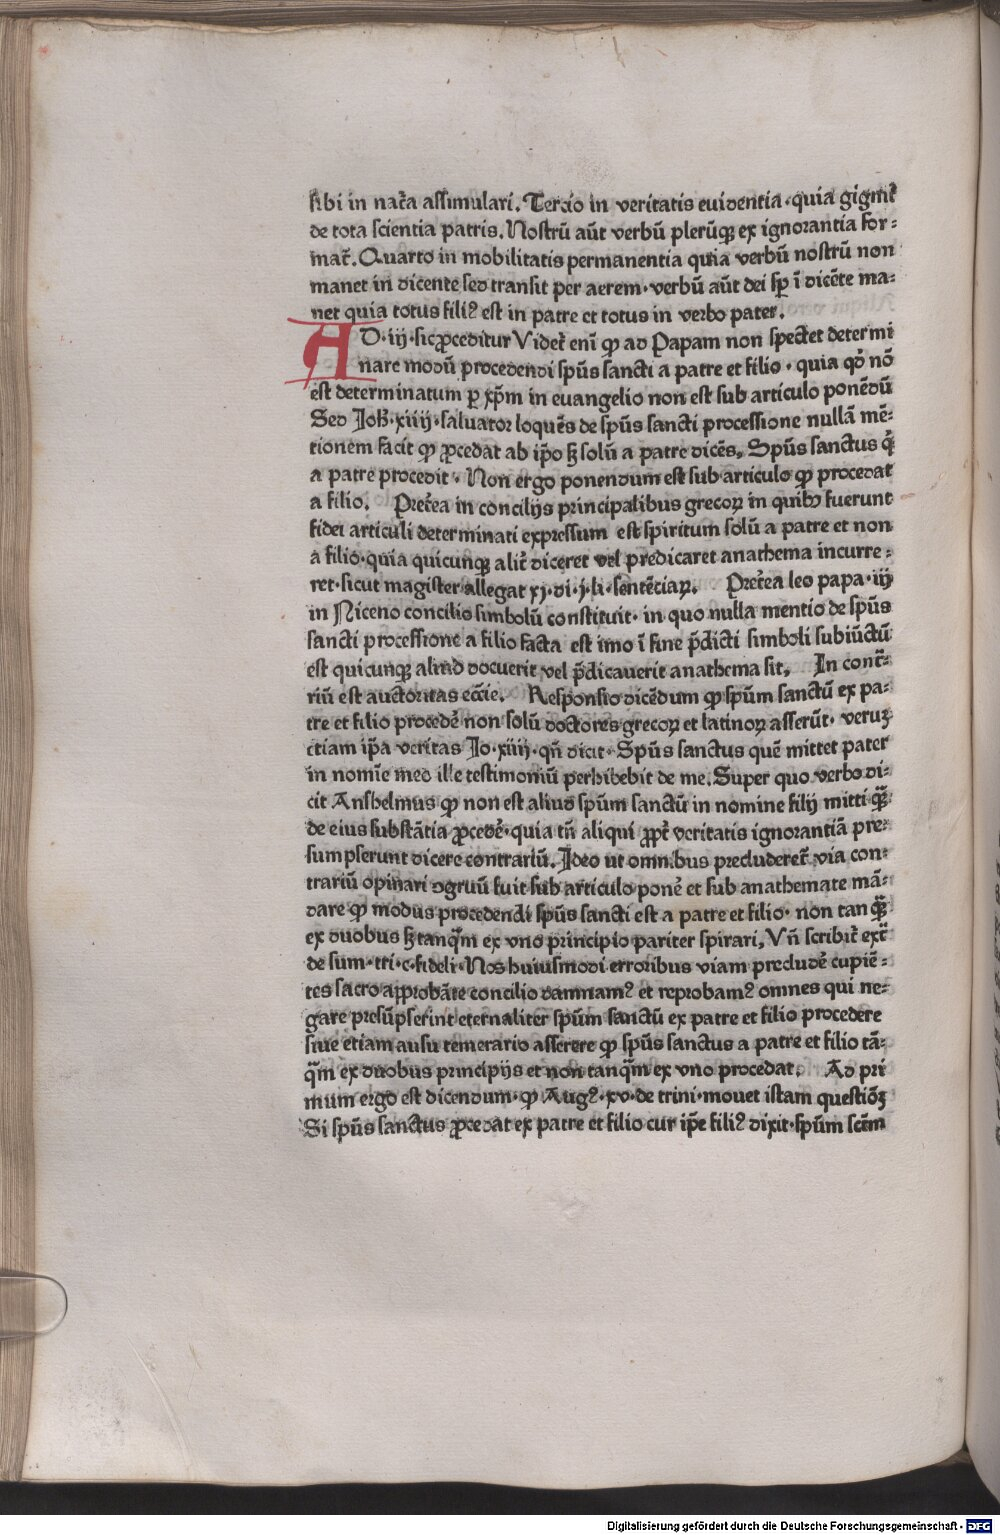 sibi in nat̄a assimulari. Tercio in veritatis euidentia·quia gignit̄
de tota scientia patris. Nostrū aūt verbū plerūqꝫ ex ignorantia for⸗
mat̄. Quarto in mobilitatis permanentia quia verbū nostrū non
manet in dicente sed transit per aerem·verbū aūt dei sꝑ ī dicēte ma⸗
net quia totus filiꝰ est in patre et totus in verbo pater.
AD·iij·sic ꝓceditur Videt̄ enī ꝙ ad Papam non spectet determi
nare modū procedendi spūs sancti a patre et filio·quia qd̄ nō
est determinatum ꝑ xp̄m in euangelio non est sub articulo ponēdū
Sed Joh̄·xiiij·saluator loquēs de spūs sancti processione nullā mē⸗
tionem facit ꝙ ꝓcedat ab ip̄o sꝫ solū a patre dicēs. Spūs sanctus q̇
a patre procedit·Non ergo ponendum est sub articulo ꝙ procedat
a filio. Pret̄ea in concilijs principalibus grecoꝝ in quibꝰ fuerunt
fidei articuli determinati expressum est spiritum solū a patre et non
a filio·quia quicunqꝫ alit̄ diceret vel predicaret anathema incurre⸗
ret·sicut magister allegat xj·di·j·li·sentēciaꝝ. Pret̄ea leo papa·iij
in Niceno concilio simbolū constituit·in quo nulla mentio de spūs
sancti processione a filio facta est imo ī fine p̄dicti simboli subiūctū
est quicunqꝫ aliud docuerit vel p̄dicauerit anathema sit. In cont̄⸗
riū est auctoritas ecc̄ie. Responsio dicēdum ꝙ spūm sanctū ex pa⸗
tre et filio procedē non solū doctores grecoꝝ et latinoꝝ asserūt·veruꝫ
etiam ip̄a veritas Jo·xiiij·qn̄ dicit·Spūs sanctus quē mittet pater
in nomīe meo ille testimoniū perhibebit de me. Super quo verbo di⸗
cit Anshelmus ꝙ non est aliud spūm sanctū in nomine filij mitti qꝫ̄
de eius substātia ꝓcedē·quia tn̄ aliqui ꝓpt̄ veritatis ignorantiā pre⸗
sumpserunt dicere contrariū. Ideo ut omnibus precluderet̄ via con⸗
trariū opinari ↄgruū fuit sub articulo ponē et sub anathemate mā⸗
dare ꝙ modus procedendi spūs sancti est a patre et filio·non tanqꝫ̄
ex duobus sꝫ tanq̄m ex vno principio pariter spirari, Vn̄ scribit̄ ext̄
de sum·tri·c·fideli·Nos huiusmodi erroribus viam precludē cupiē⸗
tes sacro aꝓprobāte concilio damnamꝰ et reprobamꝰ omnes qui ne⸗
gare presūpserint eternaliter spūm sanctū ex patre et filio procedere
siue etiam ausu temerario asserere ꝙ spūs sanctus a patre et filio tā⸗
q̄m ex duobus principijs et non tanq̄m ex vno procedat. Ad pri
mum ergo est dicendum·ꝙ Augꝰ·xv·de trini·mouet istam questiōꝫ
Si spūs sanctus ꝓcedat ex patre et filio cur ip̄e filiꝰ dixit·spūm sc̄m
Digitalisierung gefördert durch die Deutsche Forschungsgemeinschaft - DFG